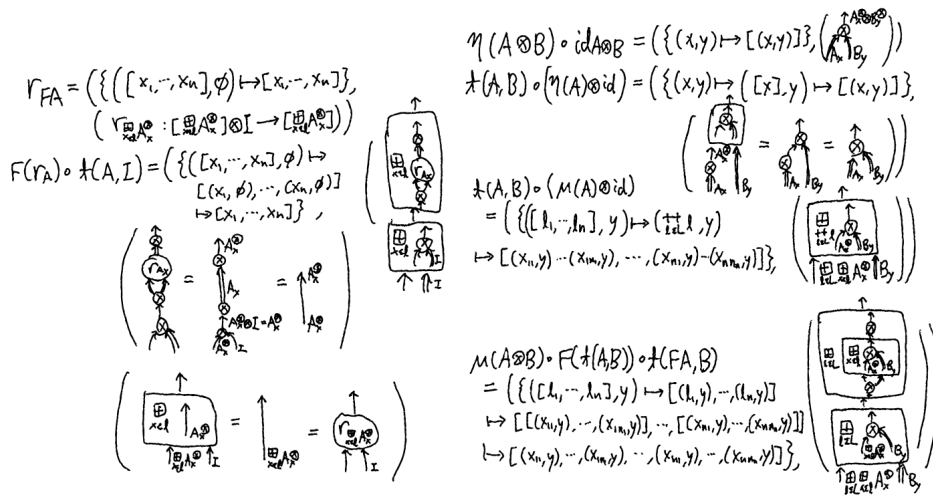 r_{FA} = ({([x_1,…,x_n],∅) ↦ [x_1,…,x_n]},
(r_{⊞_{x∈l} A_x^⊗} : [⊞_{x∈l} A_x^⊗]⊗I → [⊞_{x∈l} A_x^⊗]))
F(r_A)∘t(A,I) = ({([x_1,…,x_n],∅) ↦
[(x_1,∅),…,(x_n,∅)]
↦ [x_1,…,x_n]},
⊞_{x∈l} r_{A_x}
⊞_{x∈l} ⊗ I
r_{A_x} = A_x^⊗ A_x A_x^⊗⊗I=A_x^⊗ A_x^⊗ I = A_x^⊗ A_x^⊗
⊞_{x∈l} A_x^⊗ ⊞_{x∈l} A_x^⊗ I = ⊞_{x∈l} A_x^⊗ = r_{⊞_{x∈l} A_x^⊗} I
η(A⊗B)∘id_{A⊗B} = ({(x,y) ↦ [(x,y)]}, (A_x^⊗⊗B_y^⊗ ⊗ A_x B_y))
t(A,B)∘(η(A)⊗id) = ({(x,y) ↦ ([x],y) ↦ [(x,y)]},
(⊗ A_x^⊗ A_x B_y = ⊗ ⊗ A_x B_y = ⊗ A_x B_y))
t(A,B)∘(μ(A)⊗id)
= ({([l_1,…,l_n],y) ↦ (++_{l∈L} l,y)
↦ [(x_{11},y)…(x_{1m},y),…,(x_{n1},y)…(x_{nm_n},y)]},
⊞_{++_{l∈L} l} ⊗ A_x^⊗ B_y
⊞_{l∈L} ⊞_{x∈l} A_x^⊗ B_y
μ(A⊗B)∘F(t(A,B))∘t(FA,B)
= ({([l_1,…,l_n],y) ↦ [(l_1,y),…,(l_n,y)]
↦ [[(x_{11},y),…,(x_{1m_1},y)],…,[(x_{n1},y),…,(x_{nm_n},y)]]
↦ [(x_{11},y),…,(x_{1m},y),…,(x_{n1},y),…,(x_{nm_n},y)]},
⊞_{l∈L} ⊞_{x∈l} ⊗ A_x^⊗ B_y
⊞_{l∈L} ⊗ ⊞_{x∈l} A_x^⊗ B_y
⊞_{l∈L} ⊞_{x∈l} A_x^⊗ B_y